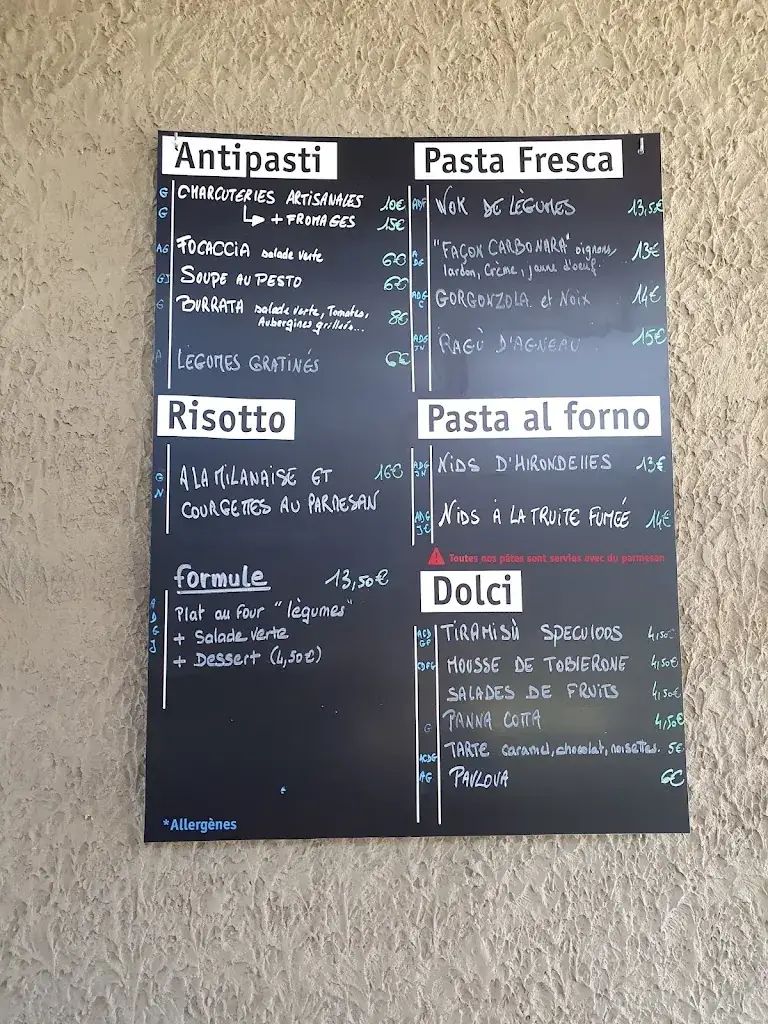 Antipasti
G CHARCUTERIES ARTISANALES 10€
G + FROMAGES 15€
AG FOCACCIA salade verte 6€
GJ SOUPE AU PESTO 6€
G BURRATA salade verte, Tomates, 8€
Aubergines grillées...
A LÉGUMES GRATINÉS 6€
Risotto
G A LA MILANAISE ET 16€
N COURGETTES AU PARMESAN
formule 13,50€
A Plat au four "légumes"
D + Salade verte
G + Dessert (4,50€)
J
*Allergènes
Pasta Fresca
ADF WOK DE LÉGUMES 13,5€
A "FAÇON CARBONARA" oignons, 13€
DG lardon, Crème, jaune d'oeuf.
ADG GORGONZOLA et NOIX 14€
C
ADG RAGÙ D'AGNEAU 15€
JN
Pasta al forno
ADG NIDS D'HIRONDELLES 13€
JN
ADG NIDS À LA TRUITE FUMÉE 14€
Toutes nos pâtes sont servies avec du parmesan
Dolci
ACD TIRAMISÙ SPECULOOS 4,50€
GP
CDFG MOUSSE DE TOBLERONE 4,50€
SALADES DE FRUITS 4,50€
G PANNA COTTA 4,50€
ACDG TARTE caramel, chocolat, noisettes. 5€
AG PAVLOVA 6€